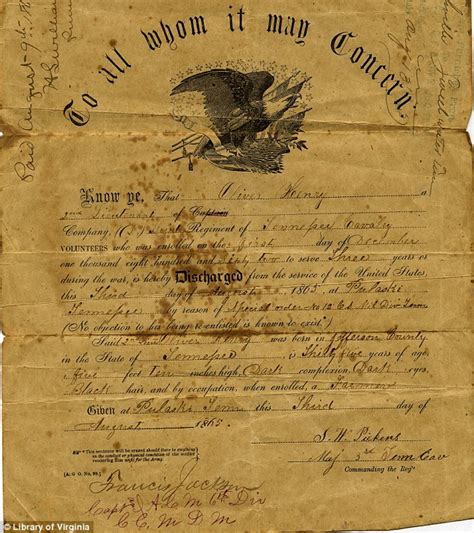 Paid August 9th
To all whom it may Concern.
Know ye, That Oliver Henry
2nd Lieutenant of Captain
Company, Regiment of Tennessee Cavalry
VOLUNTEERS who was enrolled on the first day of December
one thousand eight hundred and sixty two to serve Three years or
during the war, is hereby Discharged from the service of the United States,
this Third day of August 1865 at Pulaski
Tennessee by reason of Special order No 12
(No objection to his being re-enlisted is known to exist.)
Said Oliver Henry was born in Jefferson County
in the State of Tennessee is Thirty five years of age,
five feet ten inches high, Dark complexion, Dark eyes,
Black hair, and by occupation, when enrolled, a Farmer
Given at Pulaski Tenn this Third day of
August 1865.
S. W. Pickens
Maj 3rd Tenn Cav
Commanding the Reg't
[A. G. O. No. 99.]
Francis Jackson
Capt 6th Div
© Library of Virginia